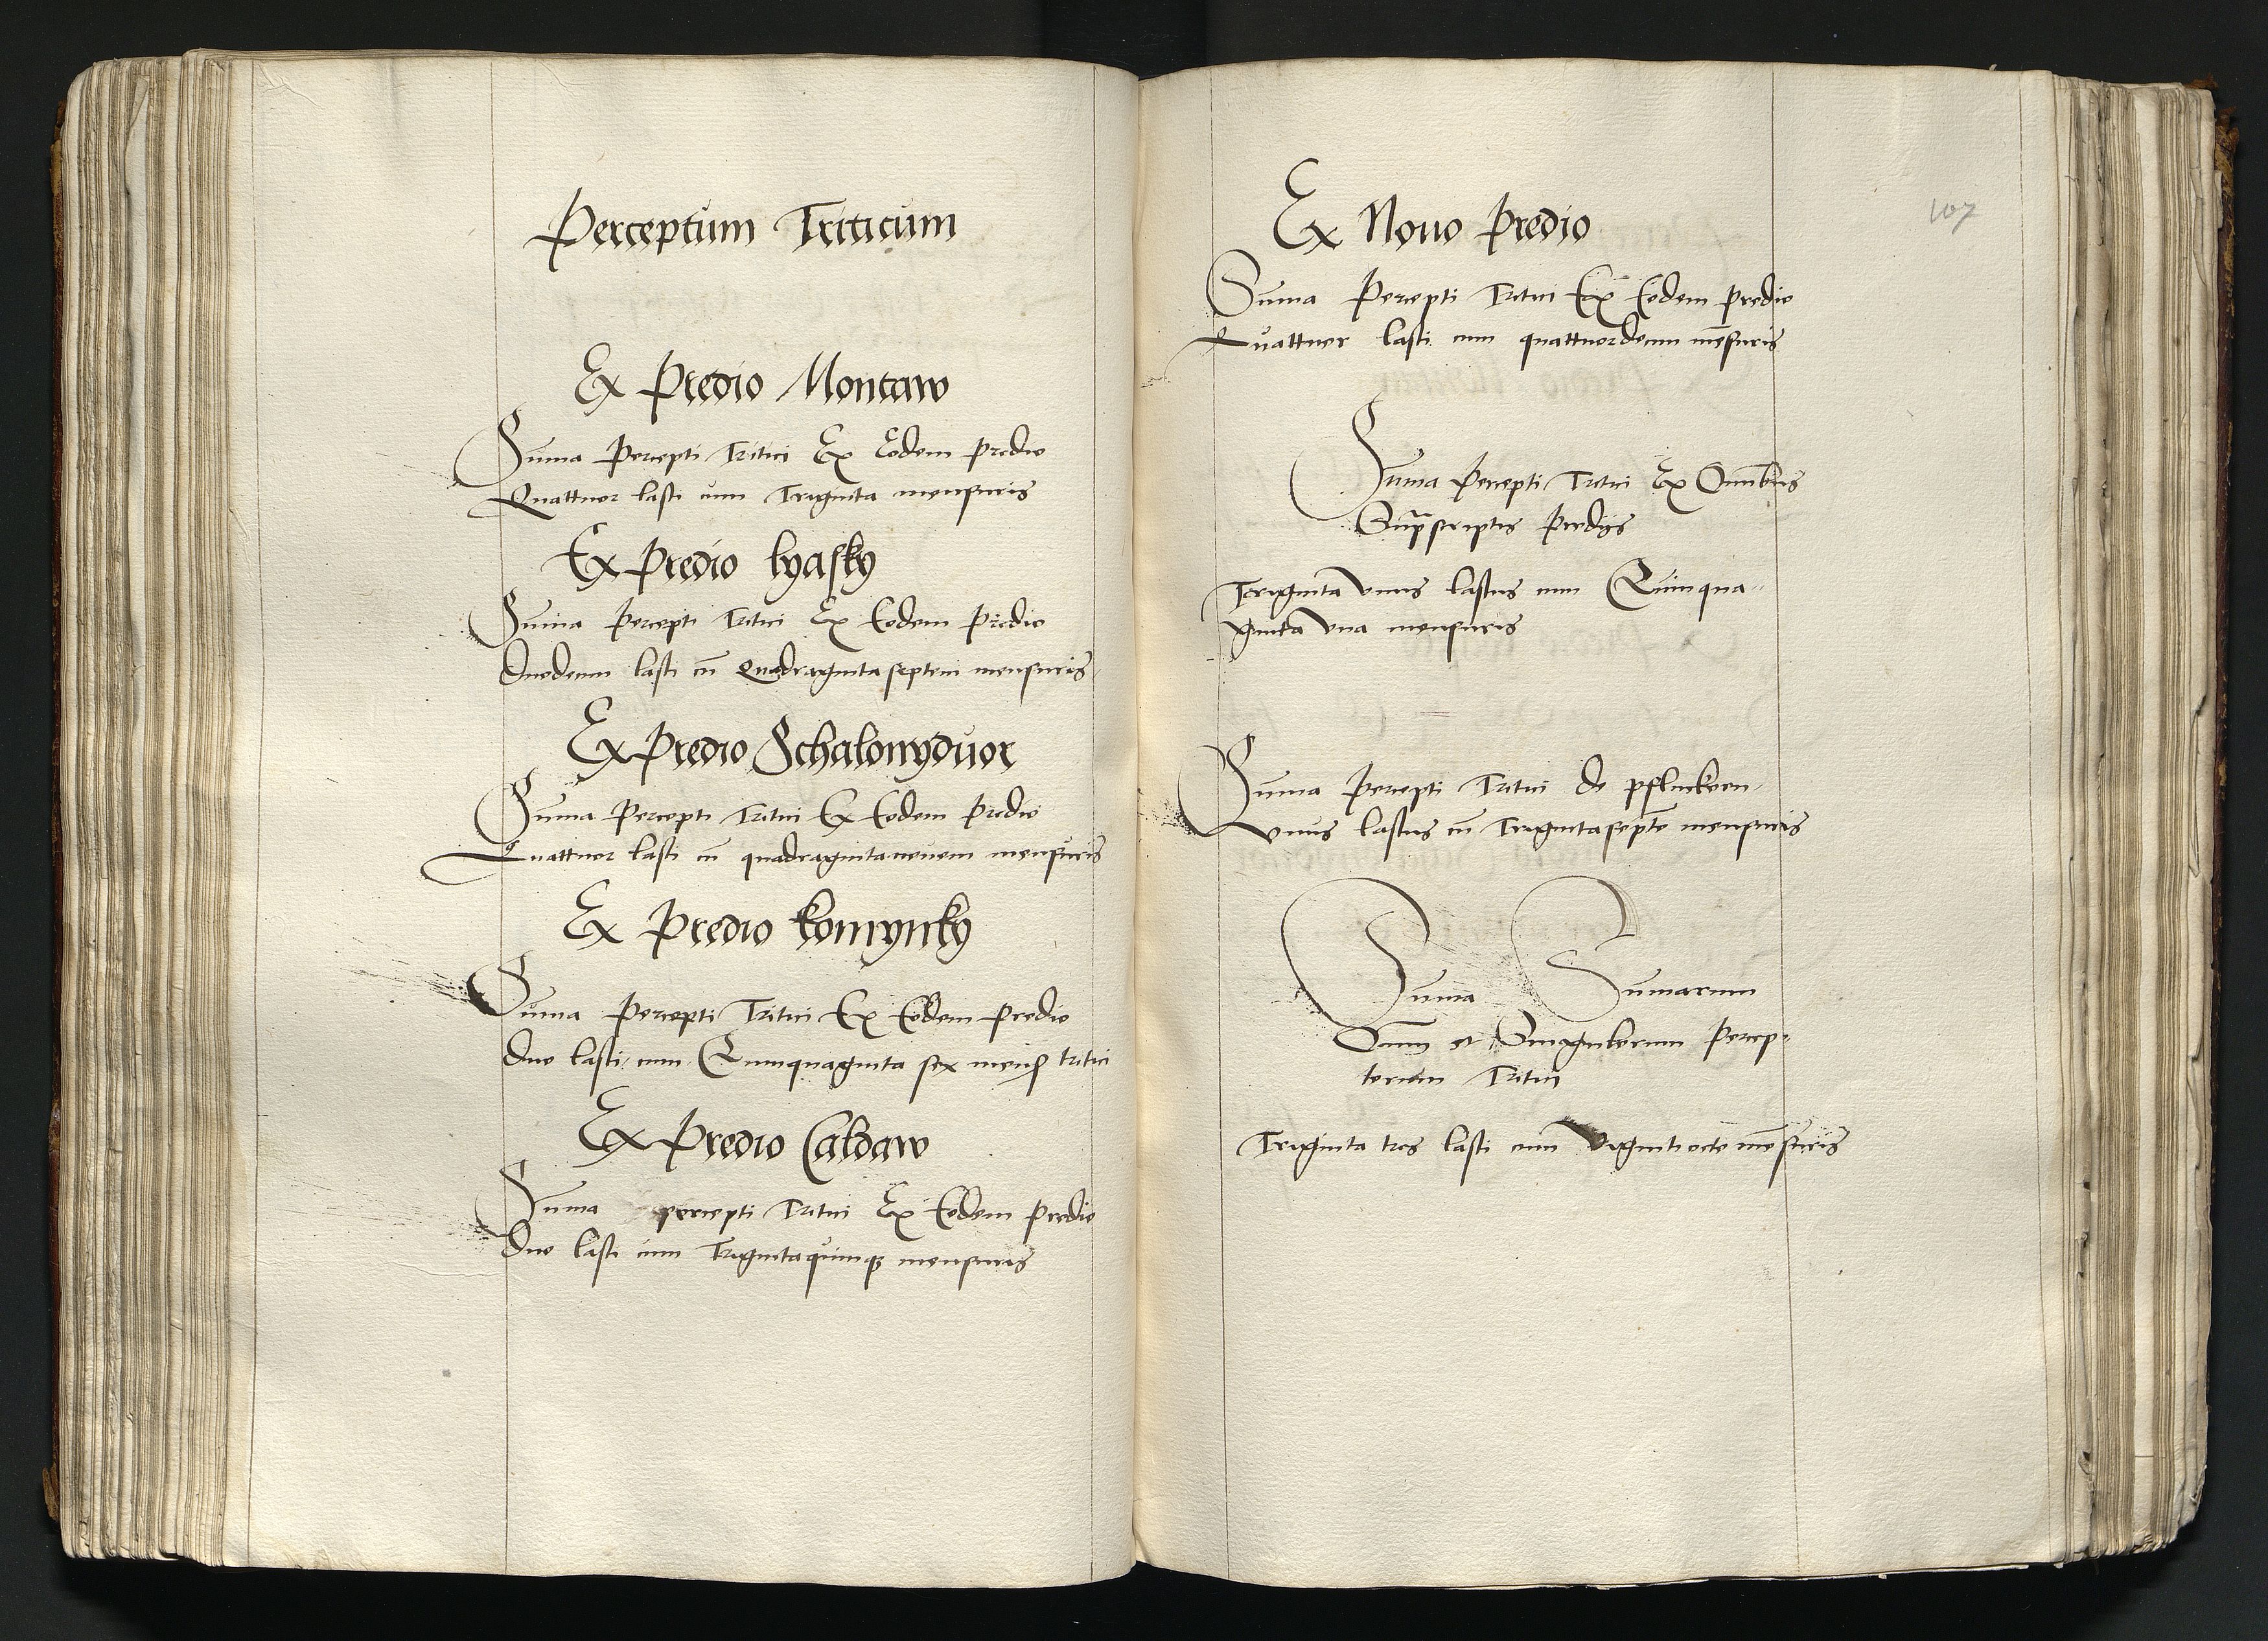 Perceptum Triticum
Ex Predio Montaw
Suma Percepti Tritici Ex Eodem predio
Quattuor lasti cum Triginta mensuris
Ex Predio lyasky
Suma percepti Tritici Ex Eodem Predio
Duodecim lasti cū Quadragintaseptem mensuris
Ex Predio Schalonyduor
Suma Percepti Tritici Ex Eodem Predio
Quattuor lasti cū quadragintanouem mensuris
Ex Predio komynky
Suma Percepti Tritici Ex Eodem Predio
Duo lasti cum Quinquaginta sex mens tritici
Ex Predio Caldaw
Suma percepti Tritici Ex Eodem predio
Duo lasti cum Trigintaquinqȝ mensuris
Ex Nouo Predio
107
Suma Percepti Tritici Ex Eodem predio
Quattuor lasti cum quattuordecim mēsuris
Suma Percepti Tritici Ex Omnibus
Supscriptis Predijs
Triginta vnus lastus cum Quinqua-
ginta vna mensuris
Suma Percepti Tritici de pfluckorn
Vnus lastus cū Trigintaseptē mensuris
Suma Sumarum
et Singulorum Percep-
torum Tritici
Triginta tres lasti cum vigintiocto mēsuris